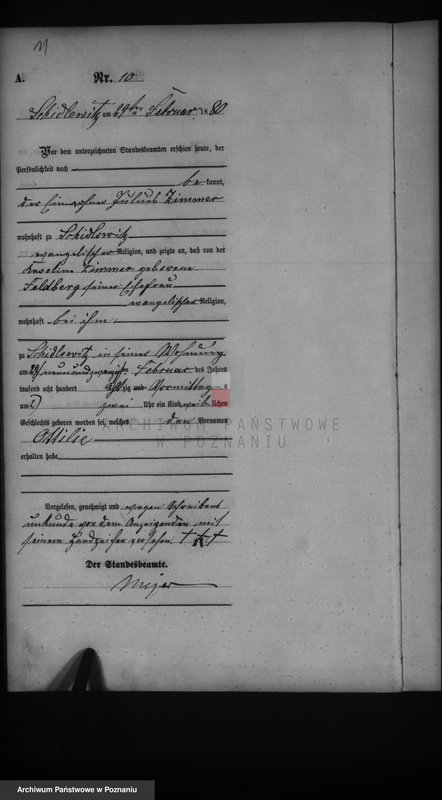 A.
Nr. 10
Schidlowitz am 29ten Februar 1880
Vor dem unterzeichneten Standesbeamten erschien heute, der
Persönlichkeit nach
bekannt,
der Einwohner Julius Zimmer
wohnhaft zu Schidlowitz
evangelischer Religion, und zeigte an, daß von der
Karoline Zimmer geborene
Feldberg seiner Ehefrau
evangelischer Religion,
wohnhaft bei ihm
zu Schidlowitz in seiner Wohnung
am neunundzwanzigsten Februar des Jahres
tausend acht hundert achtzig Vormittags
um zwei Uhr ein Kind weiblichen
Geschlechts geboren worden sei, welches den Vornamen
Ottilie
erhalten habe
Vorgelesen, genehmigt und wegen Schreibens
unkunde von dem Anzeigenden mit
seinem Handzeichen versehen +++
Der Standesbeamte.
ARCHIWUM PAŃSTWOWE
W POZNANIU
Archiwum Państwowe w Poznaniu